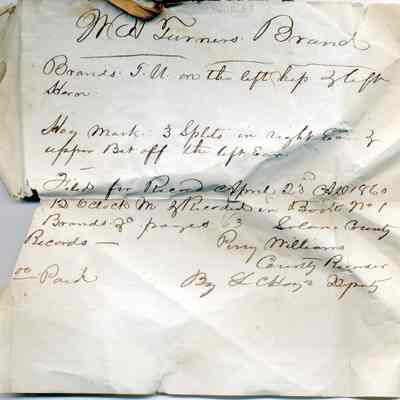 W D Turners Brand
Brands T. U. on the left hip & left
Horn.
Hog Mark. 3 Splits in right Ear &
upper Bit off the left Ear.
Filed for Record April 23d AD 1860
12 O'Clock M & Recorded in Book No 1
Brands &c pages 3 Solano County
Records —
Perry Williams
County Recorder
By L C Hays Deputy
00 Paid